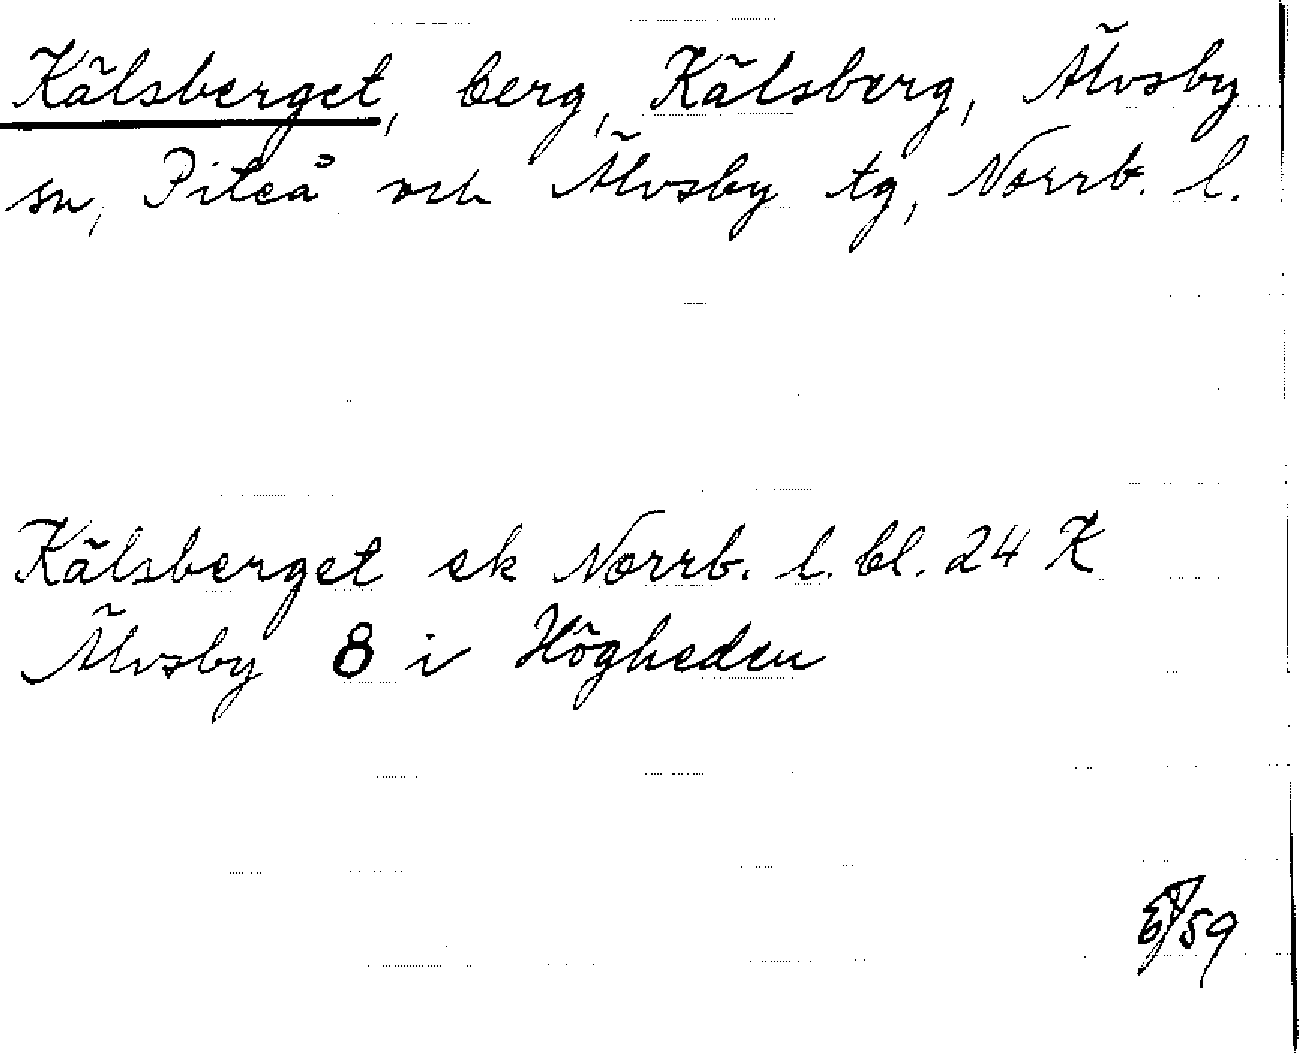 Kälsberget, berg, Kälsberg, Älvsby
sn, Piteå och Älvsby tg, Norrb. l.
Kälsberget ek Norrb. l. bl. 24 K
Älvsby 8 i Högheden
59